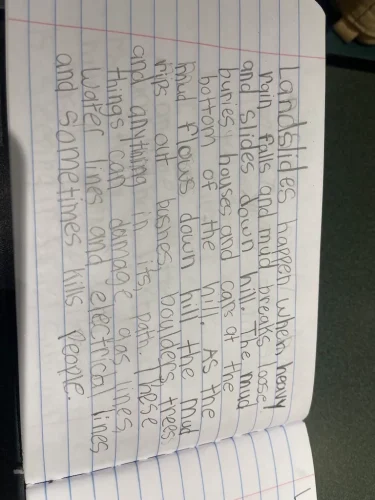 Landslides happen when heavy
rain falls and mud breaks loose
and slides down hill. The mud
buries houses and cars at the
bottom of the hill. As the
mud flows down hill the mud
rips out bushes, boulders, trees
and anything in its path. These
things can damage gas lines,
water lines and electrical lines
and sometimes kills people.